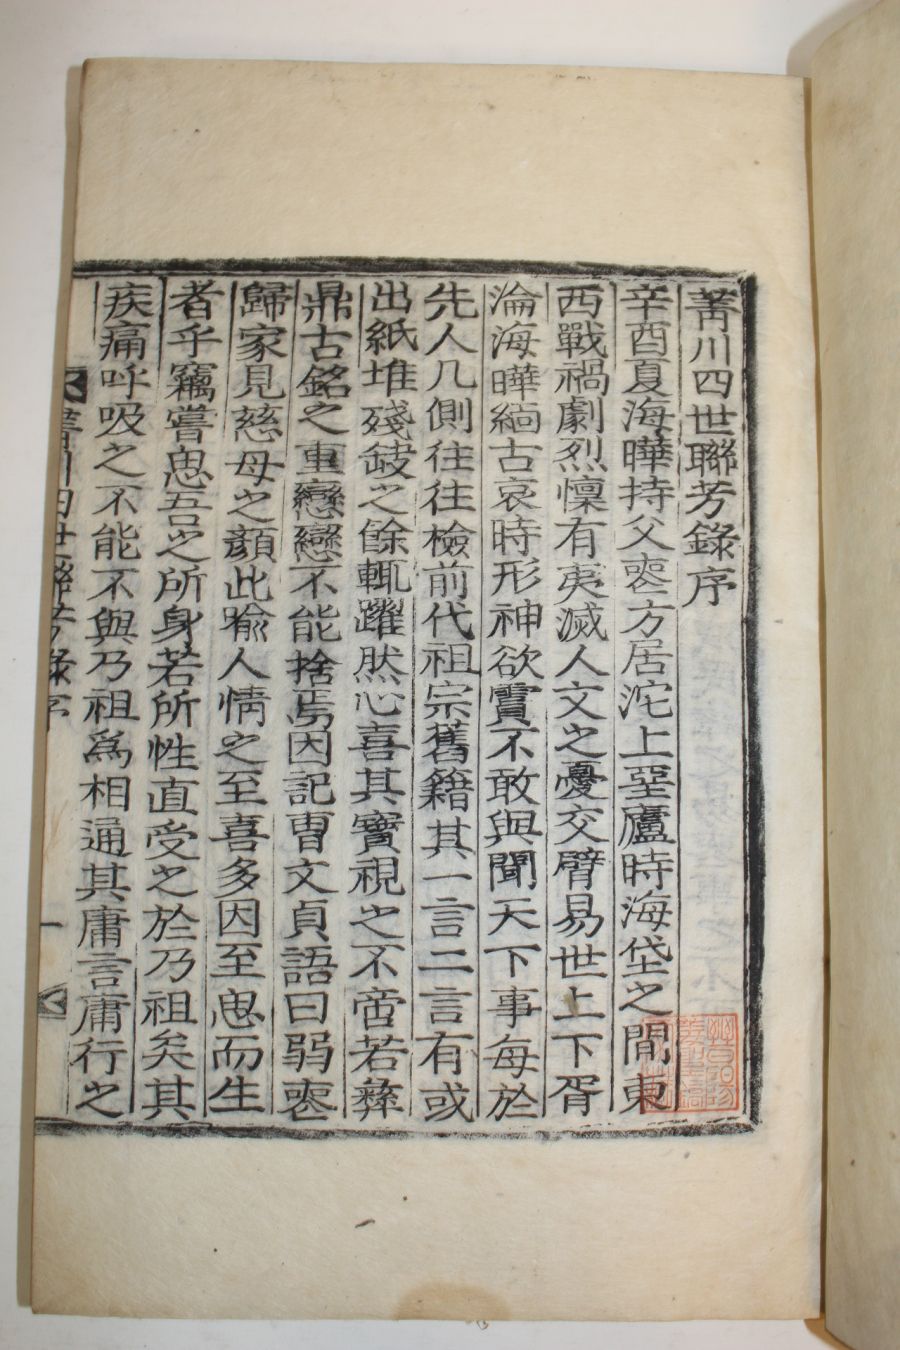 菁川四世聯芳錄序
辛酉夏海曄持父喪方居沱上堊廬時海垈之間東
西戰禍劇烈懍有夷滅人文之憂交臂易世上下胥
淪海曄緬古哀時形神欲霣不敢與聞天下事每於
先人几側往往檢前代祖宗舊籍其一言二言有或
出紙堆殘缺之餘輒躍然心喜其寶視之不啻若彝
鼎古銘之重戀戀不能捨焉因記曺文貞語曰弱喪
歸家見慈母之顔此喩人情之至喜多因至思而生
者乎竊嘗思吾之所身若所性直受之於乃祖矣其
疾痛呼吸之不能不與乃祖爲相通其庸言庸行之
菁川四世聯芳錄序
一